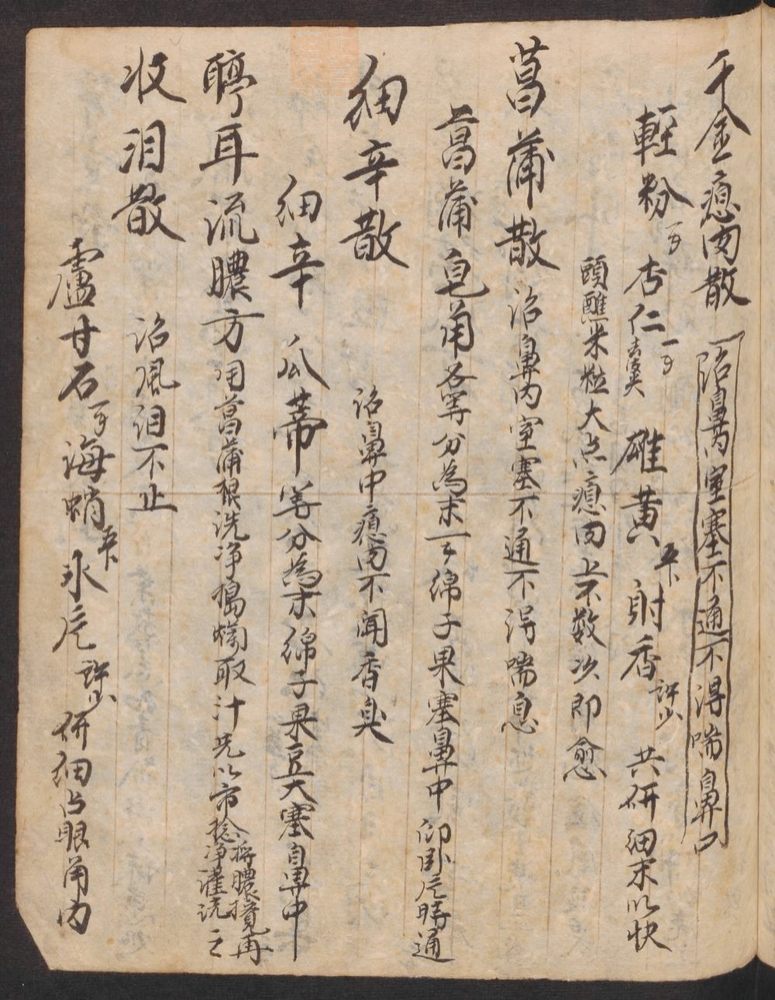 千金瘜肉散 治鼻內窒塞不通不得喘鼻口
輕粉一錢 杏仁一錢去皮尖 雄黃五分 射香許少 共研細末以快
頭醮米粒大点瘜肉上不数次即愈
菖蒲散 治鼻內窒塞不通不得喘息
菖蒲 皂角各等分為末一錢綿子果塞鼻中仰卧片時通
細辛散 治鼻中瘜肉不闻香臭
細辛 瓜蒂等分為末綿子果豆大塞鼻中
聤耳流膿方 用菖蒲根洗净搗爛取汁先以市捻膿攪净再灌洗之
收泪散 治風泪不止
盧甘石一錢 海蛸五分 氷片許少 研細点眼角內